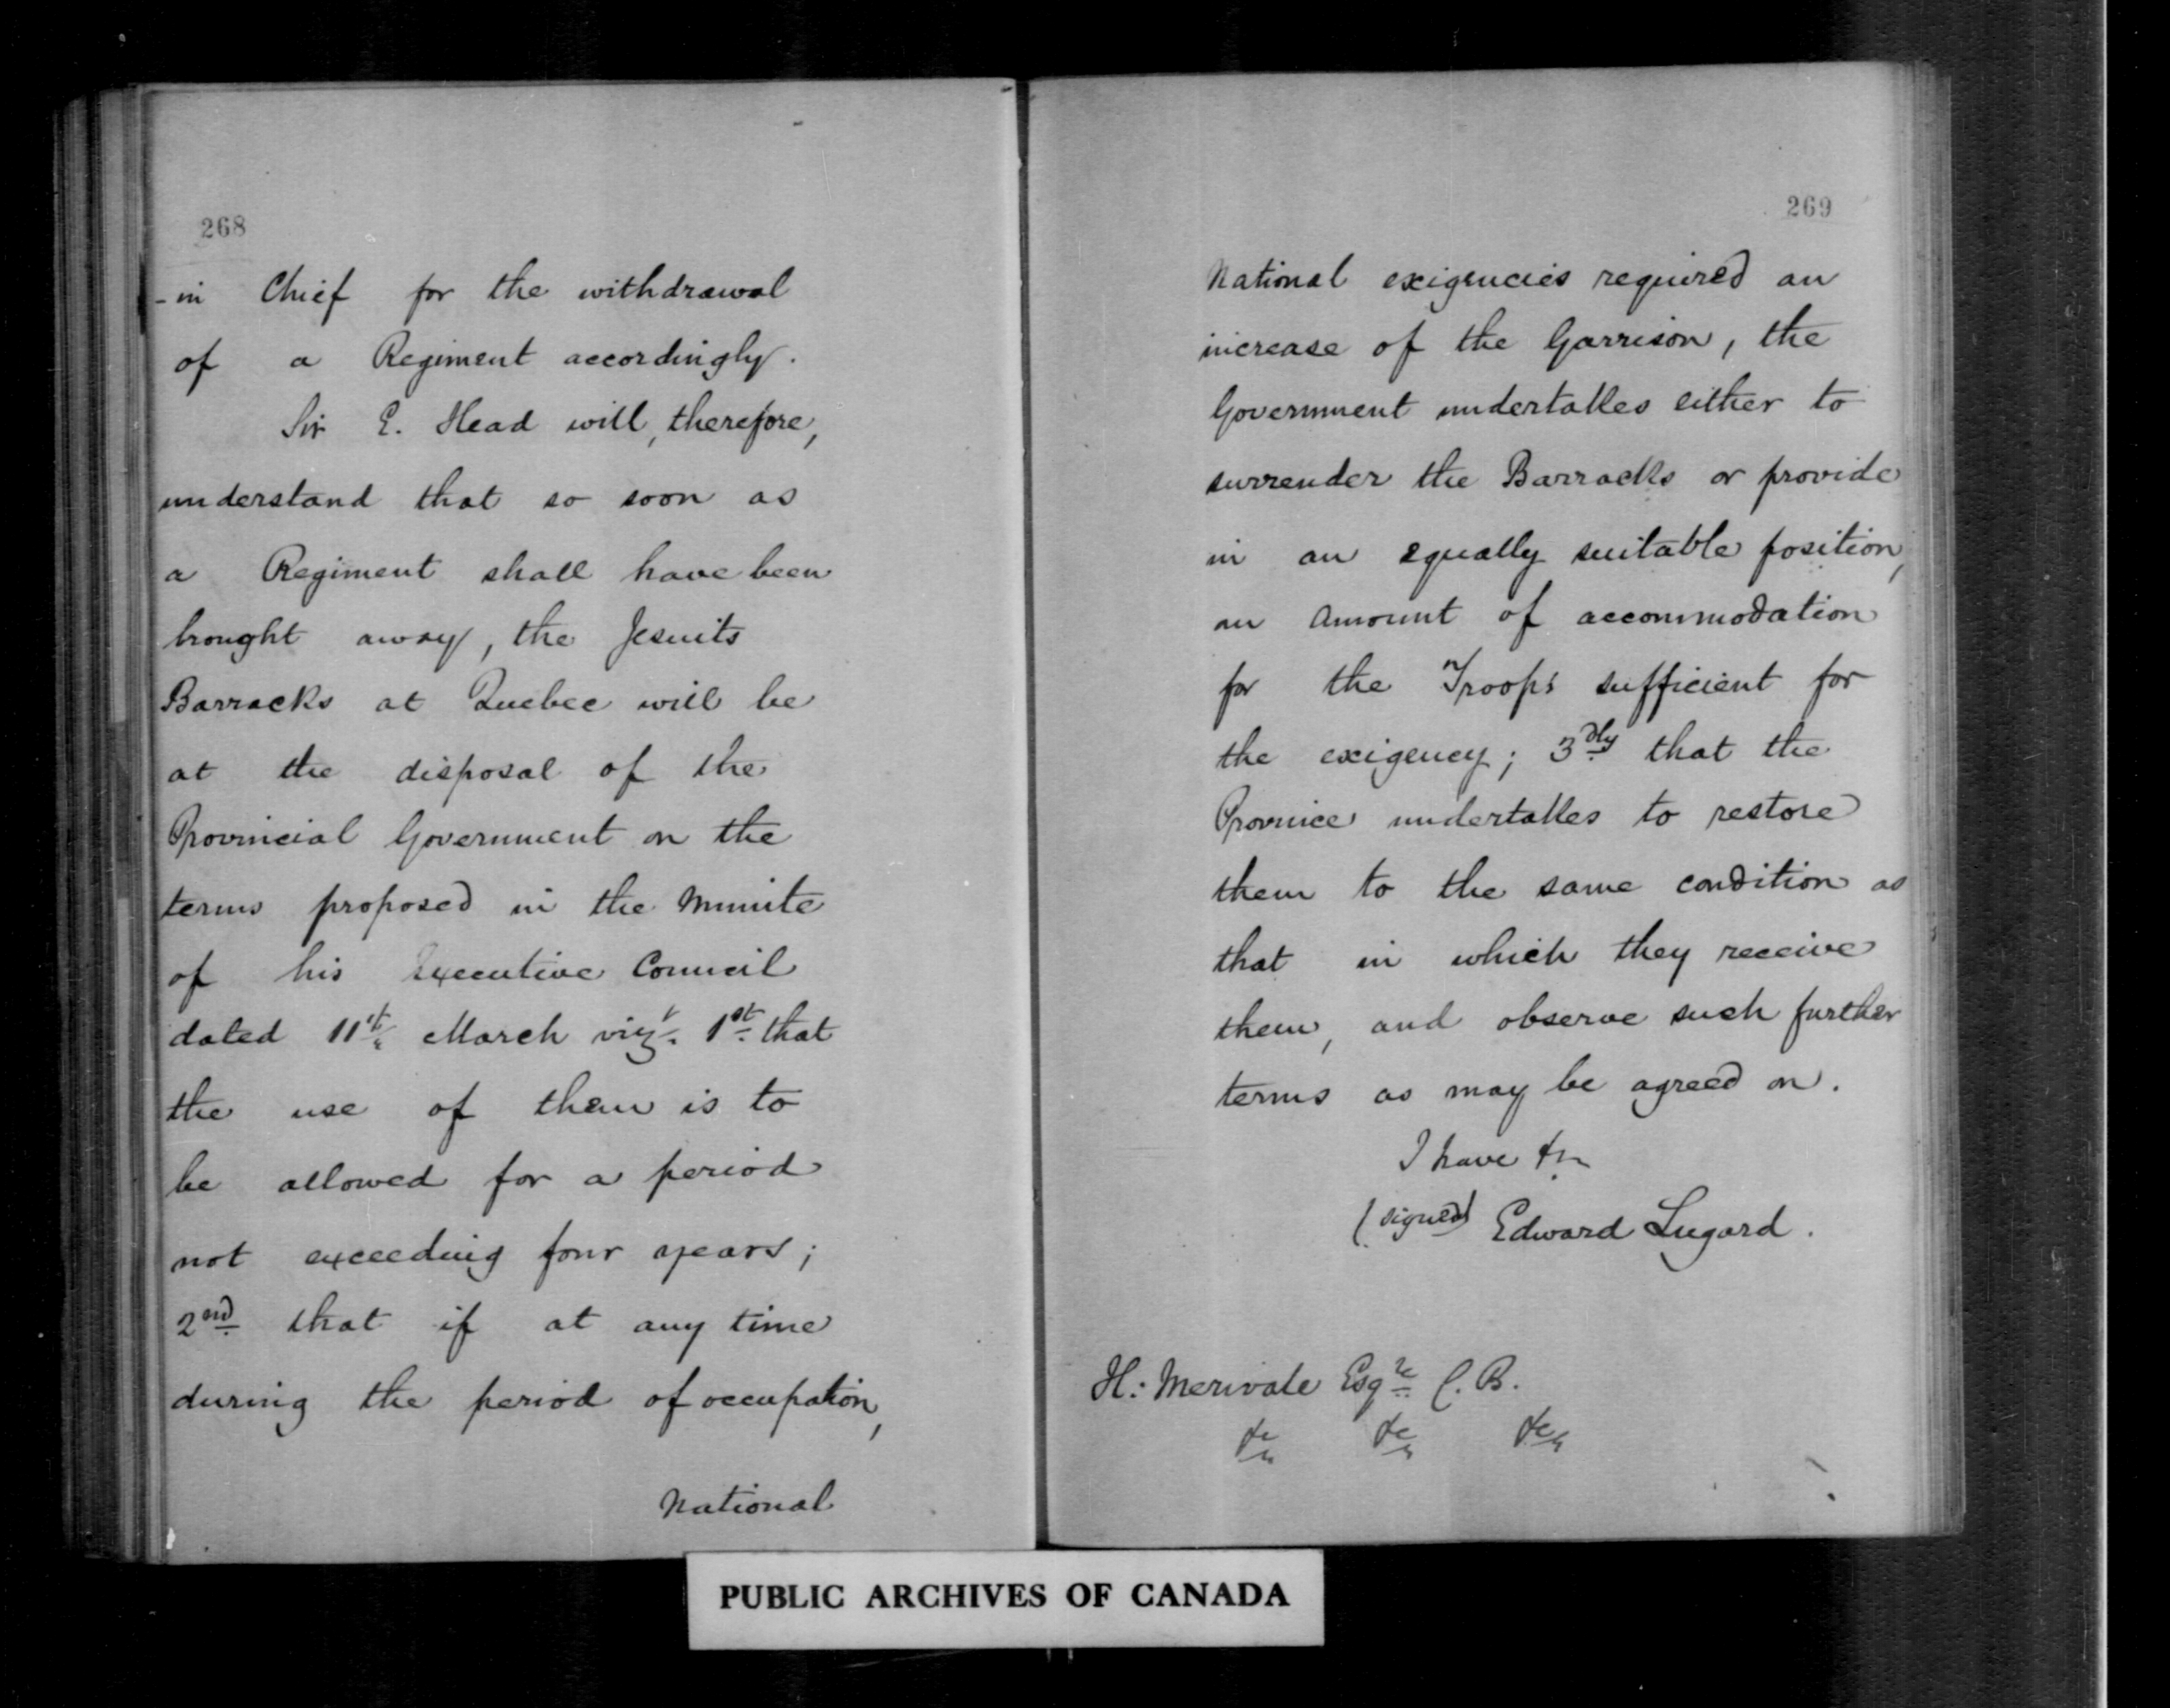 268
-in Chief for the withdrawal
of a Regiment accordingly.
Sir E. Head will, therefore,
understand that so soon as
a Regiment shall have been
brought away, the Jesuits
Barracks at Quebec will be
at the disposal of the
Provincial Government on the
terms proposed in the Minute
of his Executive Council
dated 11th March vizt. 1st that
the use of them is to
be allowed for a period
not exceeding four years;
2nd that if at any time
during the period of occupation,
National
269
National exigencies required an
increase of the Garrison, the
Government undertakes either to
surrender the Barracks or provide
in an equally suitable position,
an amount of accommodation
for the Troops sufficient for
the exigency; 3dly that the
Province undertakes to restore
them to the same condition as
that in which they receive
them, and observe such further
terms as may be agreed on.
I have &c
(signed) Edward Lugard.
H: Merivale Esqre C.B.
&c &c &c
PUBLIC ARCHIVES OF CANADA